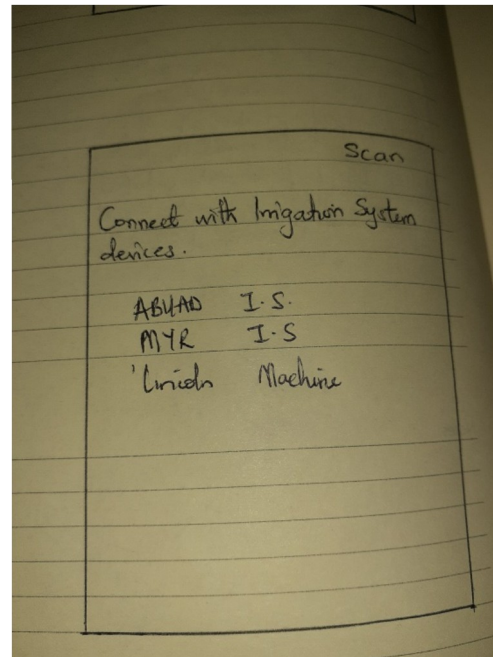 Scan
Connect with Irrigation System
devices.
ABUAD I.S.
MYR I.S
Machine